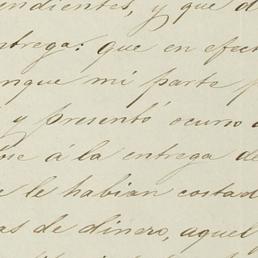 endientes, y que d
ntrega: que en efect
nque mi parte p
y presentó ocurso
se á la entrega de
e le habian costad
as de dinero, aquel